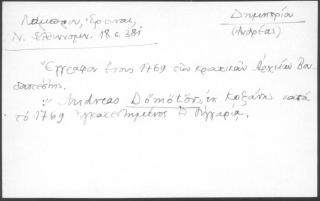 Λάμπρου, Έρευναι,
Ν. Ελληνομν. 18 σ. 381
Δημητρίου
(Ανδρέας)
Έγγραφον έτους 1769 των κρατικών Αρχείων Βου
δαπέστης.
"Andreas Dömötör, εκ Κοζάνης κατά
το 1769 εγκατεστημένος εν Ουγγαρία.